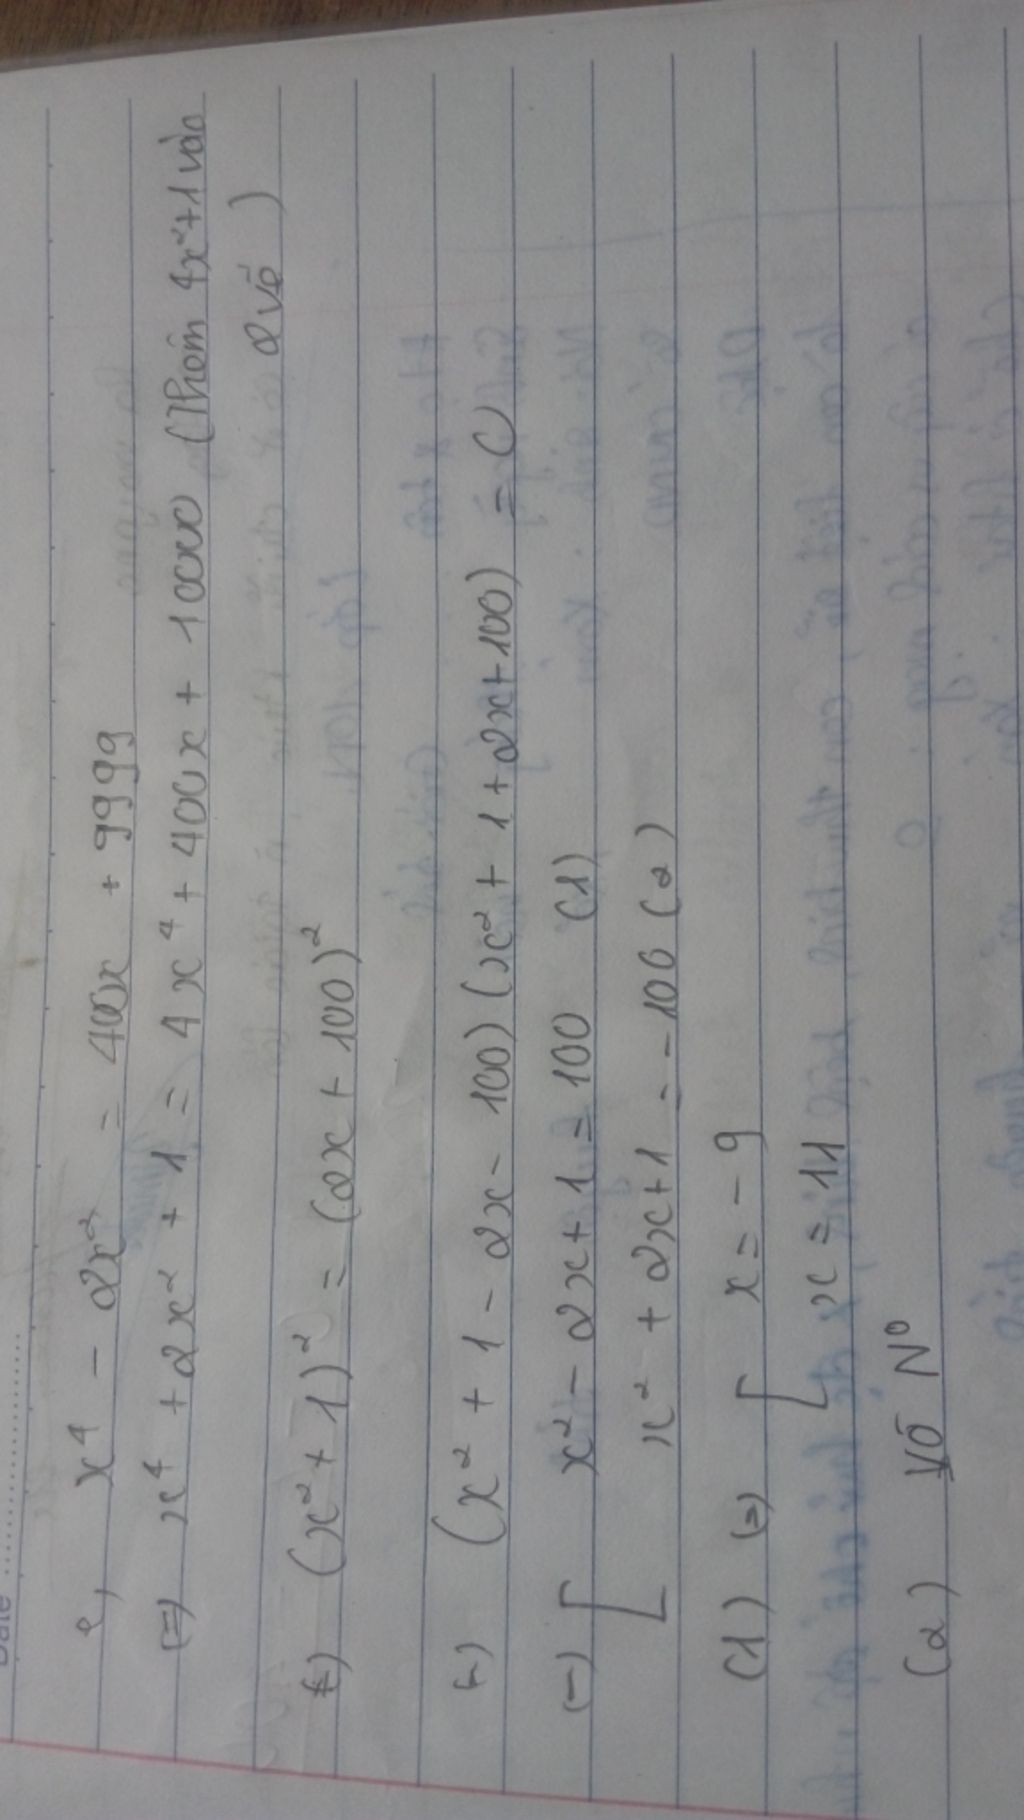 Date
e, x⁴ - 2x² = 400x + 9999
(=) x⁴ + 2x² + 1 = 4x⁴ + 400x + 10000 (Thêm 4x²+1 vào
2 vế )
(x² + 1)² = (2x + 100)²
(x² + 1 - 2x - 100) (x² + 1 + 2x + 100) = 0
x² - 2x + 1 = 100 (1)
x² + 2x + 1 = - 100 (2)
(1) (=) [ x = - 9
x = 11
(2) Vô N⁰